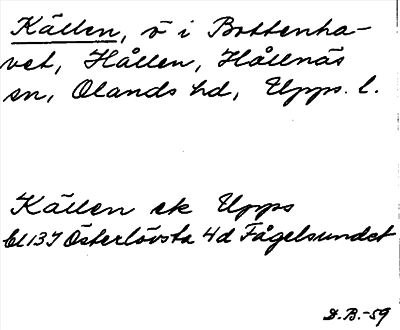 Källen, ö i Bottenha-
vet, Hållen, Hållnäs
sn, Olands hd, Upps. l.
Källen ek Upps
Bl 13I Österlövsta 4d Fågelsundet
D.B.-59